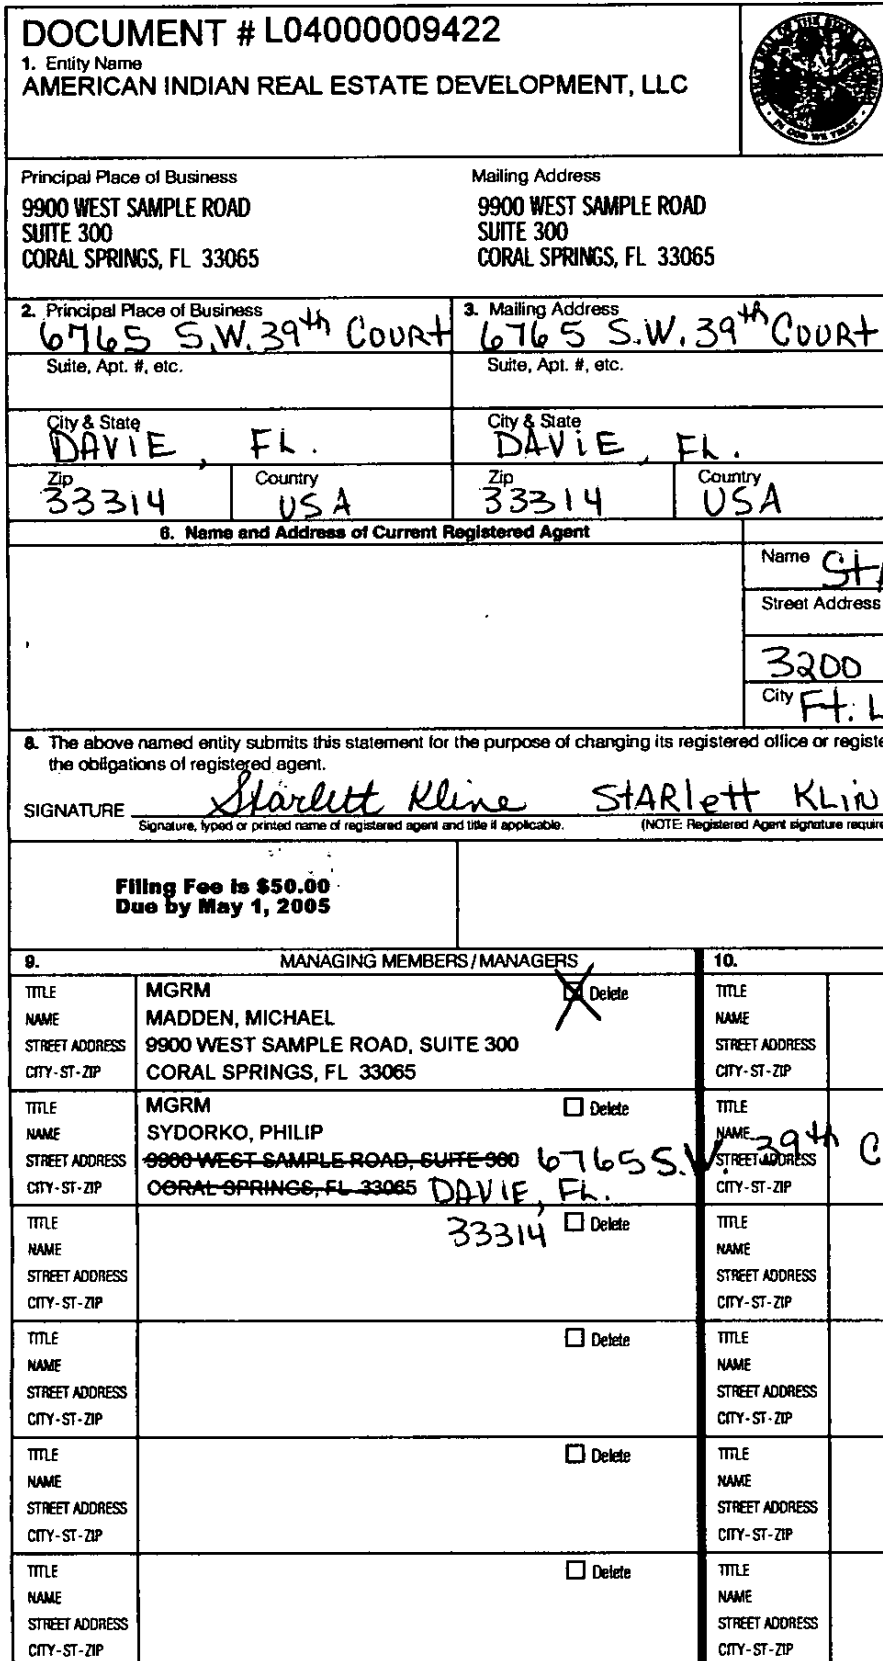 DOCUMENT # L04000009422
1. Entity Name
AMERICAN INDIAN REAL ESTATE DEVELOPMENT, LLC
IN GOD WE TRUST
Principal Place of Business
Mailing Address
9900 WEST SAMPLE ROAD
SUITE 300
CORAL SPRINGS, FL 33065
9900 WEST SAMPLE ROAD
SUITE 300
CORAL SPRINGS, FL 33065
2. Principal Place of Business
6765 S.W. 39th COURT
3. Mailing Address
6765 S.W. 39th COURT
Suite, Apt. #, etc.
Suite, Apt. #, etc.
City & State
DAVIE, FL.
City & State
DAViE, FL.
Zip
33314
Country
USA
Zip
33314
Country
USA
6. Name and Address of Current Registered Agent
Name StA
Street Address
3200
City Ft. L
8. The above named entity submits this statement for the purpose of changing its registered office or registe
the obligations of registered agent.
SIGNATURE Starlett Kline StARlett KLiN
Signature, typed or printed name of registered agent and title if applicable. (NOTE: Registered Agent signature require
Filing Fee is $50.00
Due by May 1, 2005
9. MANAGING MEMBERS / MANAGERS
10.
TITLE MGRM Delete
NAME MADDEN, MICHAEL
STREET ADDRESS 9900 WEST SAMPLE ROAD, SUITE 300
CITY-ST-ZIP CORAL SPRINGS, FL 33065
TITLE
NAME
STREET ADDRESS
CITY-ST-ZIP
TITLE MGRM Delete
NAME SYDORKO, PHILIP
STREET ADDRESS 9900 WEST SAMPLE ROAD, SUITE 300 6765 S.W. 39th C
CITY-ST-ZIP CORAL SPRINGS, FL 33065 DAVIE, FL.
33314
TITLE
NAME
STREET ADDRESS
CITY-ST-ZIP
TITLE Delete
NAME
STREET ADDRESS
CITY-ST-ZIP
TITLE
NAME
STREET ADDRESS
CITY-ST-ZIP
TITLE Delete
NAME
STREET ADDRESS
CITY-ST-ZIP
TITLE
NAME
STREET ADDRESS
CITY-ST-ZIP
TITLE Delete
NAME
STREET ADDRESS
CITY-ST-ZIP
TITLE
NAME
STREET ADDRESS
CITY-ST-ZIP
TITLE Delete
NAME
STREET ADDRESS
CITY-ST-ZIP
TITLE
NAME
STREET ADDRESS
CITY-ST-ZIP